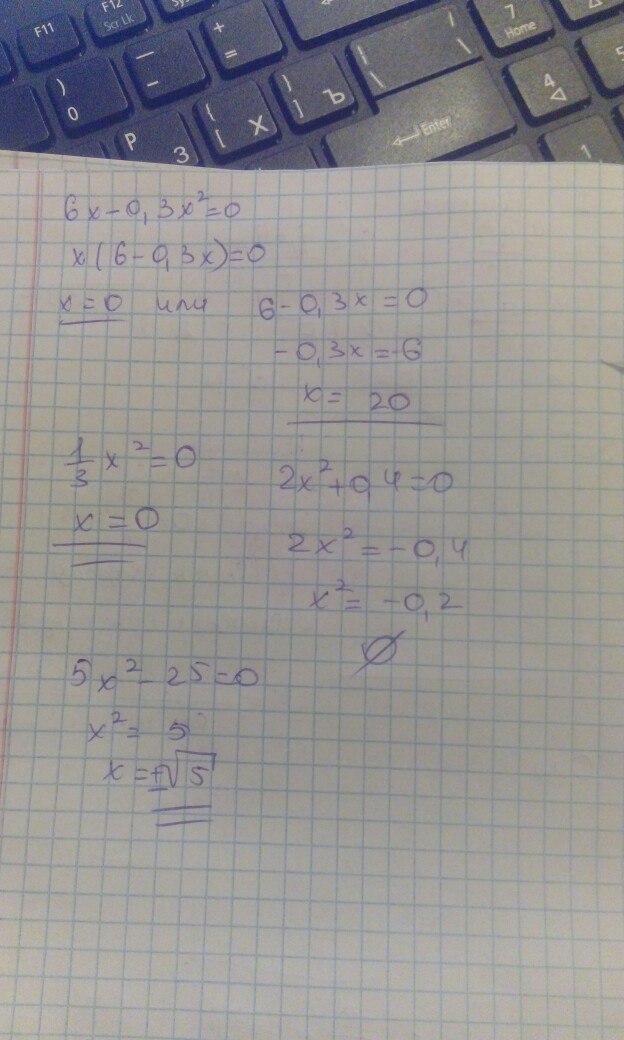 F11
F12
Scr Lk
7
Home
+
=
—
-
)
0
}
]
Ъ
{
[
Х
|
\
/
\
4
5
Enter
P
З
1
6x-0,3x²=0
x(6-0,3x)=0
x=0 или 6-0,3x=0
-0,3x=-6
x= 20
1/3 x²=0
x=0
2x²+0,4=0
2x²=-0,4
x²= -0,2
∅
5x²-25=0
x²= 5
x=±√5